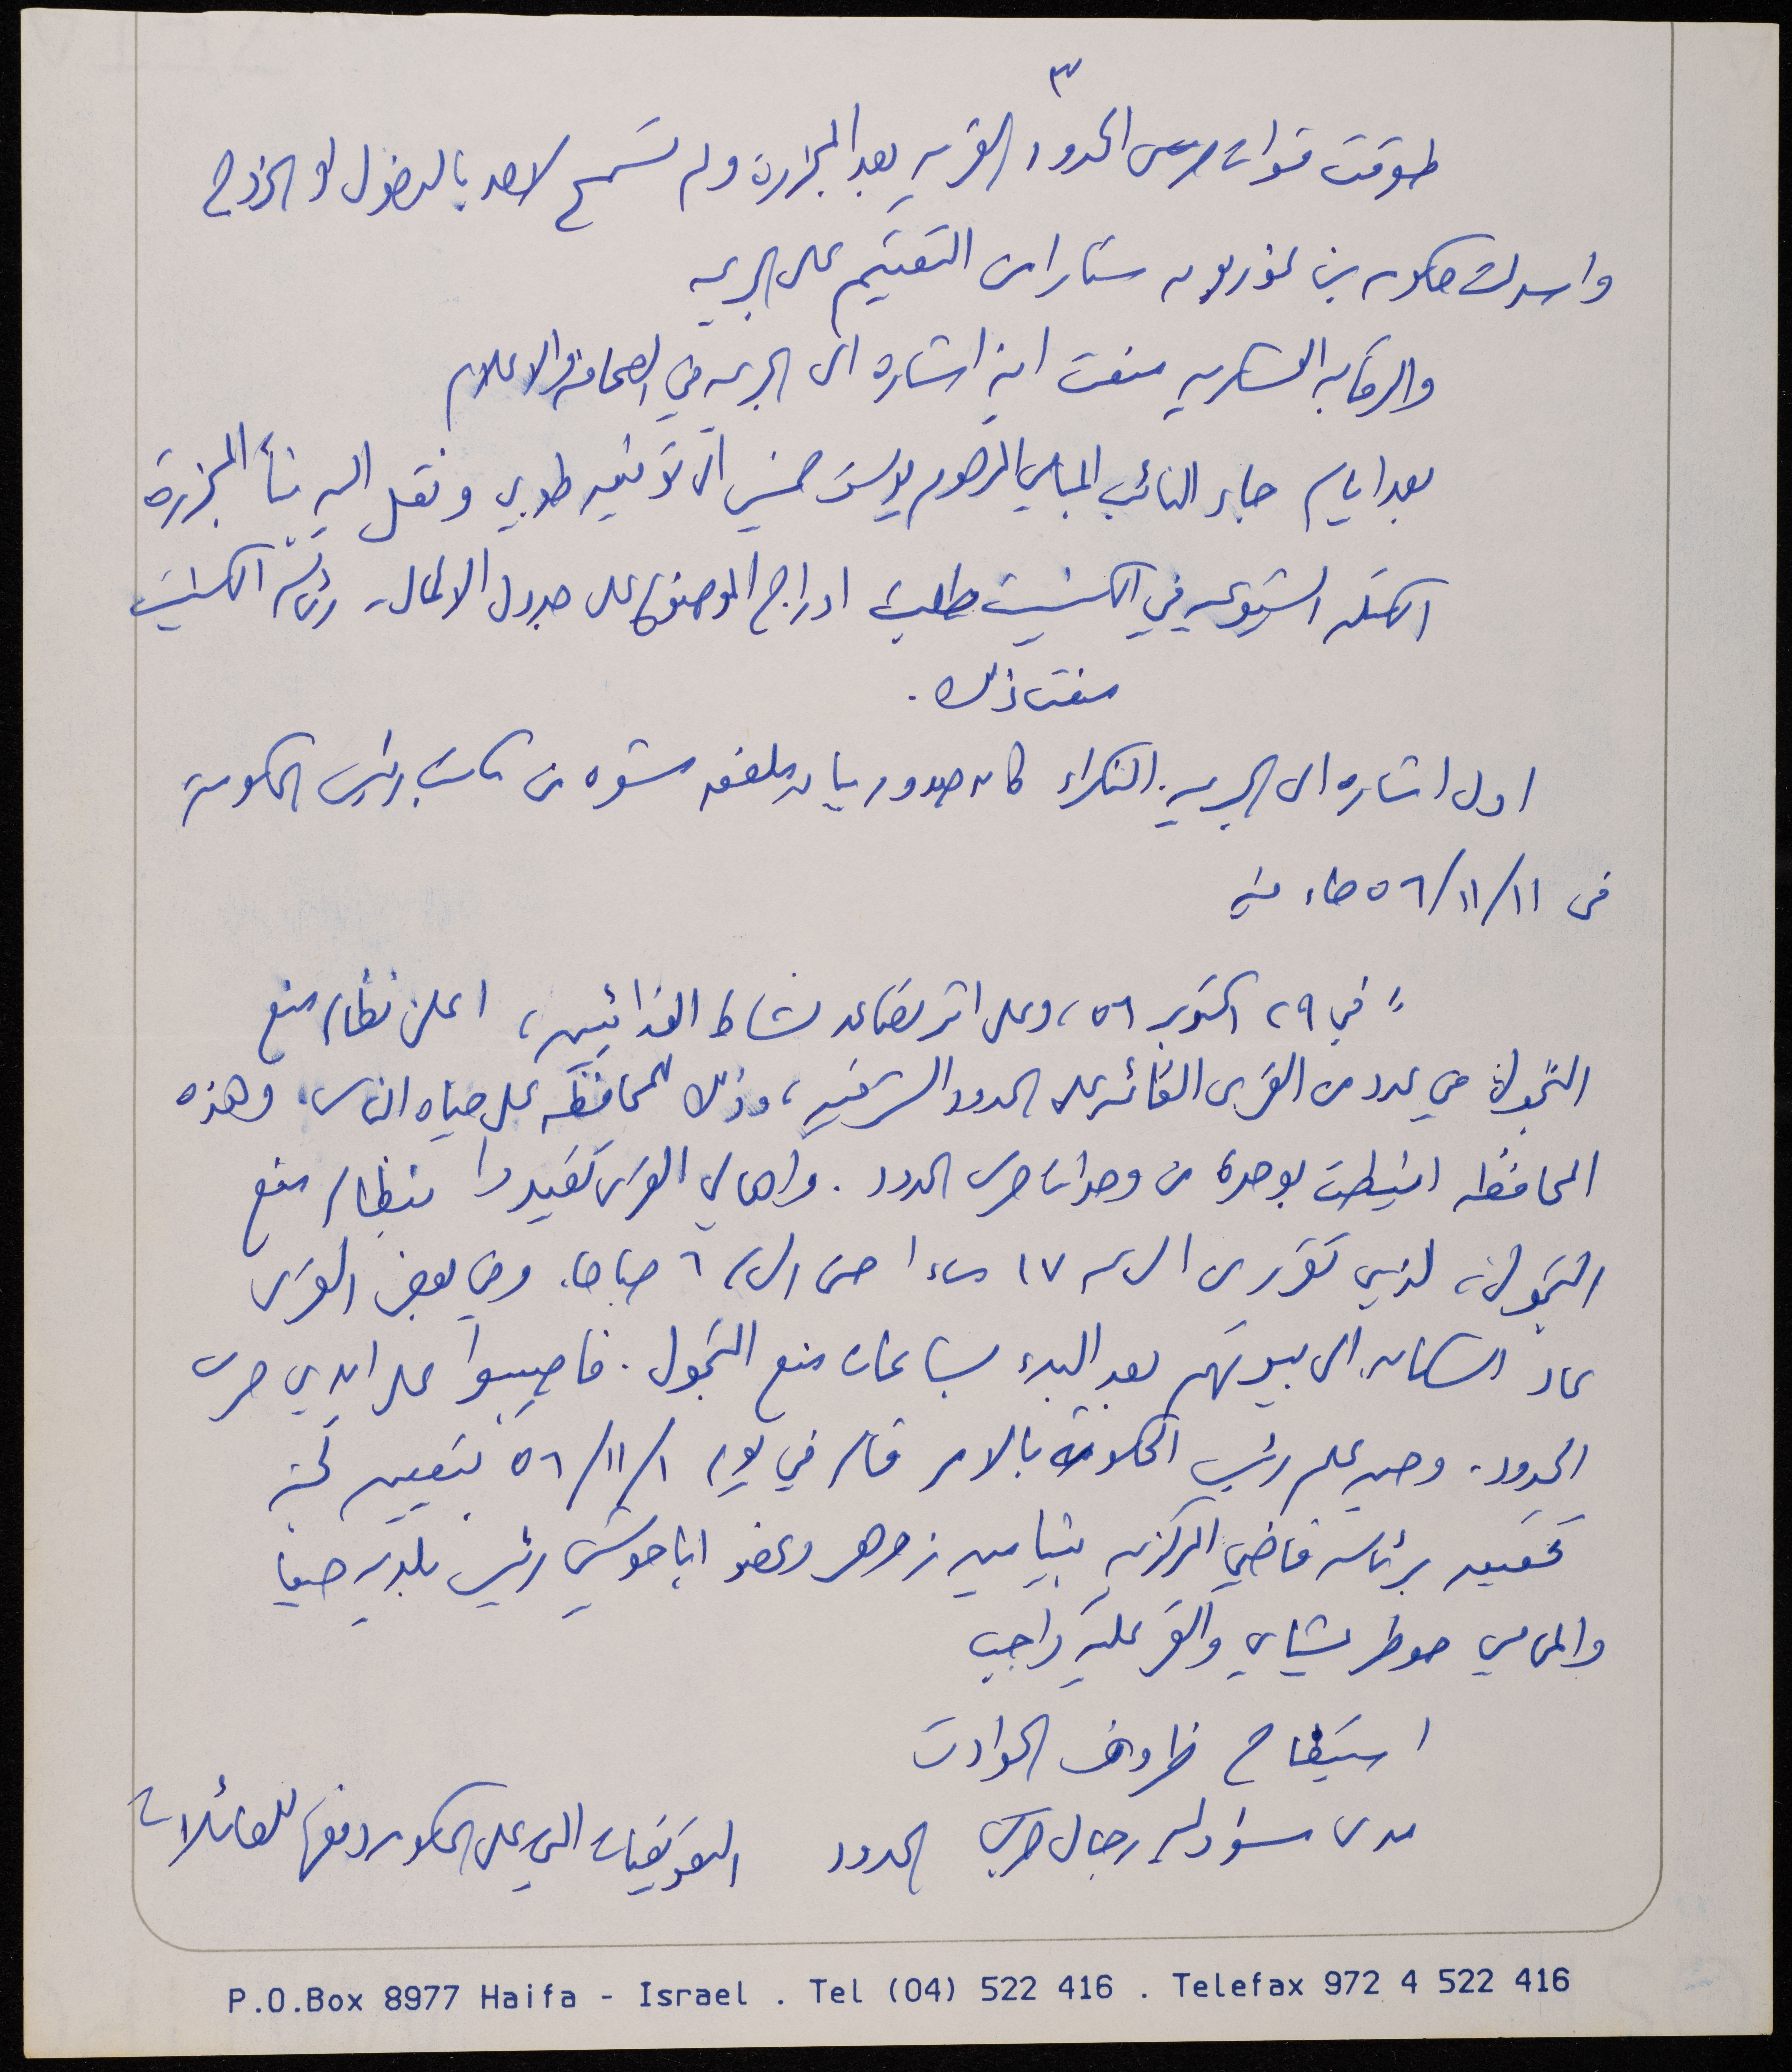 ٣
طوقت قوات حرس الحدود القريه بعد المجزرة ولم تسمح لاحد بالدخول او الخروج
واسدلت حكومه بن غوريون ستارا من التعتيم على الجريمه
والرقابه العسكريه منعت اية اشاره الى الجريمه في الصحافه والاعلام
بعد ايام جاء النائب المرحوم يوسف خميس الى توفيق طوبي ونقل اليه نبأ المجزرة
الكتله الشيوعيه في الكنيست طلبت ادراج الموضوع على جدول الاعمال. رئاسة الكنيست
منعت ذلك.
اول اشاره الى الجريمه النكراء كان صدور بيان ملفق مشوه من مكتب رئيس الحكومة
في ٥٦/١١/١١ جاء فيه
" في ٢٩ اكتوبر ٥٦، وعلى اثر تصاعد نشاط الفدائيين، اعلن نظام منع
التجول في عدد من القرى القائمه على الحدود الشرقيه، وذلك للمحافظه على حياه الناس. وهذه
المحافظه انيطت بوحدة من وحدات حرس الحدود. واهالي القرى تقيدوا بنظام منع
التجول، الذي تقرر من الساعه ١٧ مساء ا حتى الساعه ٦ صباحا. وفي بعض القرى
عاد السكان الى بيوتهم بعد البدء بساعات منع التجول. فاصيبوا على ايدي حرس
الحدود. وحين علم رئيس الحكومة بالامر قام في يوم ٥٦/١١/١ بتعيين لجنة
تحقيق برئاسه قاضي المركزيه بنيامين زوهر وعضو ابا حوشي رئيس بلدية حيفا
والمحامي حوطر يشاي والقي عليه واجب
استيضاح ظروف الحوادث
مدى مسؤوليه رجال حرس الحدود التعويضات التي على الحكومه دفعها للعائلات
P.O.Box 8977 Haifa - Israel . Tel (04) 522 416 . Telefax 972 4 522 416